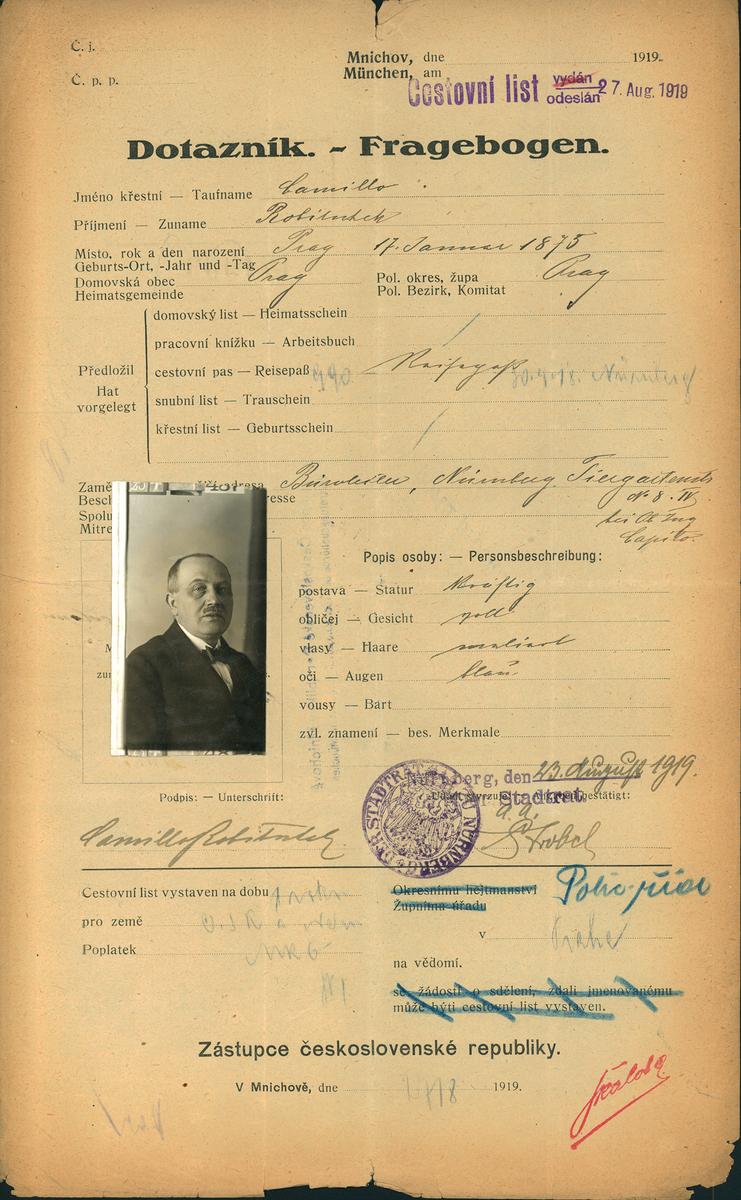 Č. j.
Mnichov, dne 1919.
Č. p. p.
München, am
Cestovní list vydán
odeslán 27. Aug. 1919
Dotazník. - Fragebogen.
Jméno křestní — Taufname Camillo
Příjmení — Zuname Robitschek
Místo, rok a den narození Prag 17. Januar 1875
Geburts-Ort, -Jahr und -Tag
Domovská obec Prag Pol. okres, župa Prag
Heimatsgemeinde Pol. Bezirk, Komitat
domovský list — Heimatsschein
pracovní knížku — Arbeitsbuch
Předložil cestovní pas — Reisepaß 990 Reisepaß 30.4.18. Nürnberg
Hat
vorgelegt snubní list — Trauschein
křestní list — Geburtsschein
Zamě adresa Büroleiter, Nürnberg
Besch resse N. 8. IV
Spolu
Mitre
Popis osoby: — Personsbeschreibung:
postava — Statur kräftig
obličej — Gesicht voll
vlasy — Haare meliert
oči — Augen blau
vousy — Bart
zvl. znamení — bes. Merkmale
Nürnberg, den 23. August 1919.
Stadtrat bestätigt:
DER STADTRAT ZU NÜRNBERG
Podpis: — Unterschrift:
Camillo Robitschek
Cestovní list vystaven na dobu
Okresnímu hejtmanství
Župnímu úřadu
pro země
v Praze
Poplatek MK 6
na vědomí.
se žádostí o sdělení, zdali jmenovanému
může býti cestovní list vystaven.
Zástupce československé republiky.
V Mnichově, dne 1919.